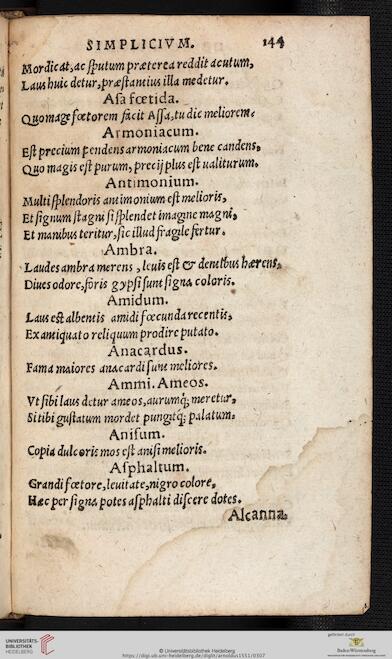 SIMPLICIVM. 144
Mordicat, ac ſputum præterea reddit acutum,
Laus huic detur, præſtantius illa medetur.
Aſa fœtida.
Quo mage fœtorem facit Aſſa, tu dic meliorem.
Armoniacum.
Eſt precium pendens armoniacum bene candens,
Quo magis eſt purum, precij plus eſt ualiturum.
Antimonium.
Multi ſplendoris antimonium eſt melioris,
Et ſignum ſtagni ſi ſplendet imagine magni,
Et manibus teritur, ſic illud fragile fertur.
Ambra.
Laudes ambra merens, leuis eſt & dentibus hærens,
Diues odore, foris gypſi ſunt ſigna coloris.
Amidum.
Laus eſt albentis amidi fœcunda recentis,
Ex antiquato reliquum prodire putato.
Anacardus.
Fama maiores anacardi ſunt meliores.
Ammi. Ameos.
Vt ſibi laus detur ameos, aurumq; meretur,
Si tibi guſtatum mordet pungitq; palatum.
Aniſum.
Copia dulcoris mos eſt aniſi melioris.
Aſphaltum.
Grandi fœtore, leuitate, nigro colore,
Hæc per ſigna potes aſphalti diſcere dotes.
Alcanna.
UNIVERSITÄTS-
BIBLIOTHEK
HEIDELBERG
© Universitätsbibliothek Heidelberg
https://digi.ub.uni-heidelberg.de/diglit/arnoldus1551/0307
gefördert durch
Baden-Württemberg